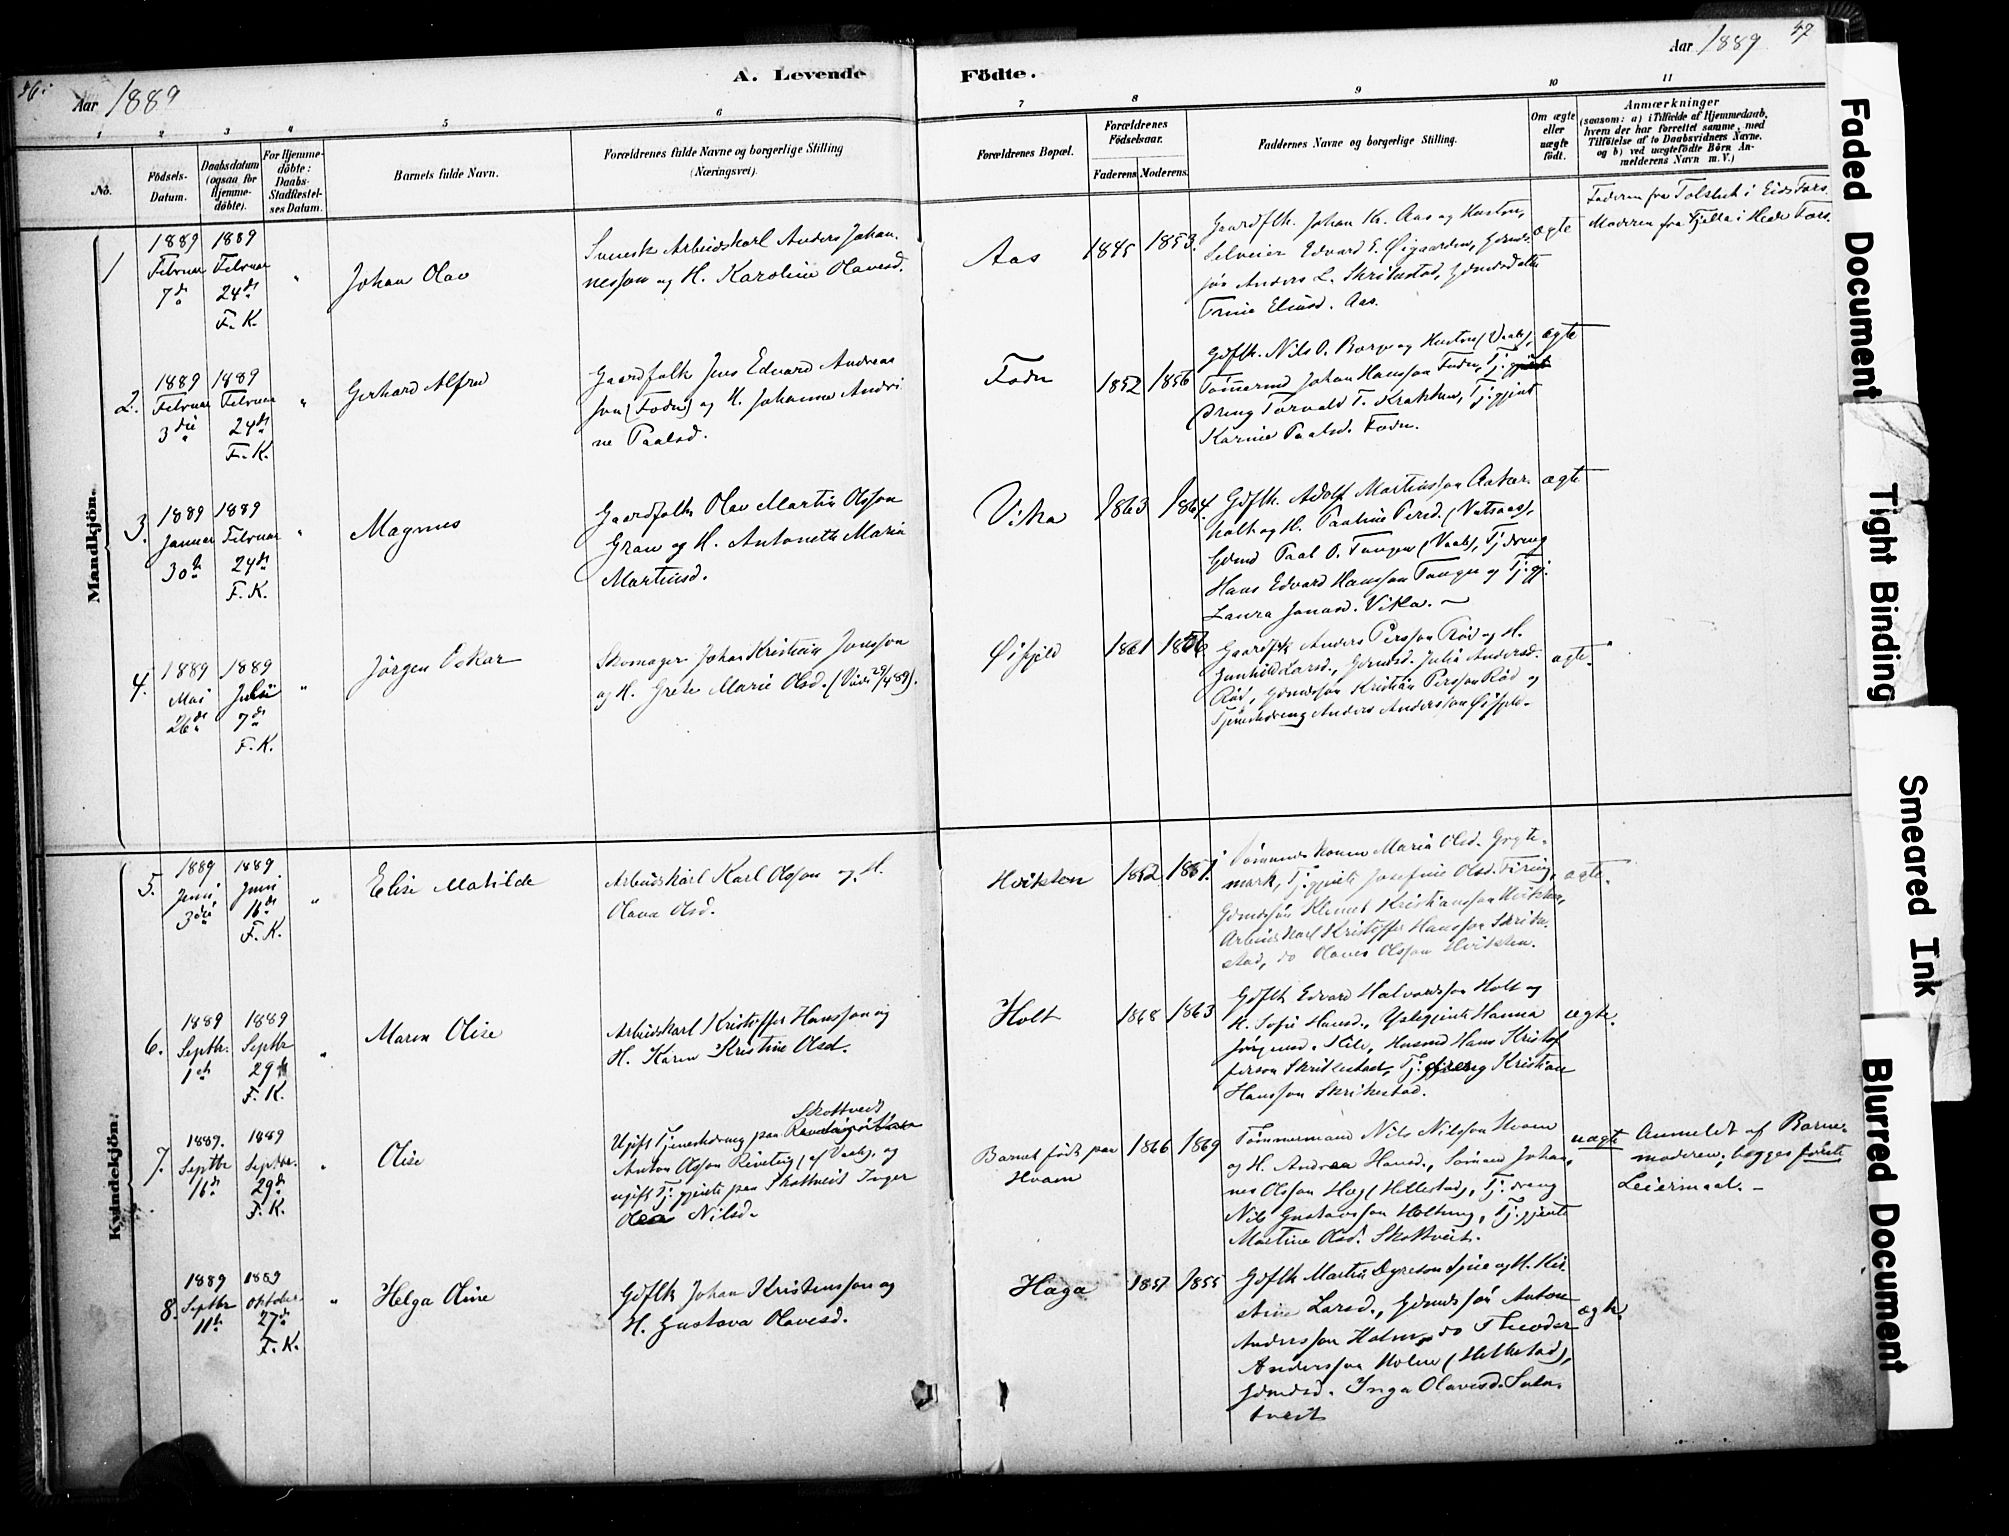 56.
Aar 1889
A. Levende
Födte.
Aar 1889
57
1
2
3
4
5
6
7
8
9
10
11
No.
Födsels-
Datum.
Daabsdatum
(ogsaa for
Hjemme-
döbte).
For Hjemme-
döbte:
Daabs-
Stadfæstel-
ses Datum.
Barnets fulde Navn.
Forældrenes fulde Navne og borgerlige Stilling
(Næringsvei).
Forældrenes Bopæl.
Forældrenes
Födselsaar.
Faderens
Moderens
Faddernes Navne og borgerlige Stilling.
Om ægte
eller
uægte
födt.
Anmærkninger
(saasom: a) i Tilfælde af Hjemmedaab,
hvem der har forrettet samme, med
Tilföielse af to Daabsvidners Navne,
og b) ved uægtefödte Börn An-
melderens Navn m. V.)
Mandkjön.
1
1889
Februar
7de
1889
Februar
24de
F. K.
"
Johan Olav
Svensk Arbeidskarl Anders Johan-
nesson og H. Karoline Olavesd.
Aas
1845
1853.
Gaardfolk Johan K. Aas og Hustru,
Selveier Edvard E. Øigaarden, Gdmds-
søn Anders L. Skrikestad, Gdmdsdatter
Trine Eliasd. Aas.
ægte
Faderen fra
i Eids
Moderen fra
i
2.
1889
Februar
3die
1889
Februar
24de
F. K.
"
Gerhard Alfred
Gaardfolk Jens Edvard Andreas-
son (Fodn) og H. Johanne Andri-
ne Paalsd.
Fodn
1852
1856
Gdflk. Nils O. Borge og Hustru (Vaale),
Tømmermd Johan Hansson Fodn, Tj.
dreng Torvald T. Krakken, Tj.gjent
Karine Paalsd. Fodn.
ægte
3.
1889
Januar
30te
1889
Februar
24de
F. K.
"
Magnus
Gaardfolk Olav Martin Olsson
Gran og H. Antonette Maria
Martinsd.
Vika
1863
1864.
Gdflk. Adolf Martinsson Aaker-
holt og H. Pauline Persd. (Vatsaas),
Gdmd Paal O. Tangen (Vaale), Tj.dreng
Hans Edvard Hansson Tangen og Tj.gj.
Laura Jonasd. Vika. —
ægte
4.
1889
Mai
26de
1889
Juli
7de
F. K.
"
Jørgen Oskar
Skomager Johan Kristian Jonsson
og H. Grete Marie Olsd. (Viede 29/4 89).
Øifjeld
1861
1856
Gaardflk Anders Persson Rød og H.
Gunhild Larsd., Gdmdsd. Julie Andersd.
Rød, Gdmdssøn Kristian Persson Rød og
Tjenestedreng Anders Andersson Øifjeld.
ægte.
Kvindekjön.
5.
1889
Juni
3die
1889
Juni
16de
F. K.
"
Elise Matilde
Arbeidskarl Karl Olsson og H.
Olava Olsd.
Hvitsten
1852
1851.
Sømandskonen Maria Olsd. Grytte-
mark, Tj.gjente Josefine Olsd.
Gdmdssøn Klemet Kristiansson
Arbeidskarl Kristoffer Hansson Skrike-
stad, do Olaves Olsson Hvitsten.
ægte.
6.
1889
Septbr.
1ste
1889
Septbr
29de
F. K.
"
Maren Olise
Arbeidskarl Kristoffer Hansson og
H. Karen Kristine Olsd.
Holt
1868
1863
Gdflk Edvard Halvorsson Holt og
H. Sofie Hansd., Pigegjente Hanna
Jörgensd. Kile, Husmd Hans Kristof-
ferson Skrikestad, Tj. dreng Kristian
Hansson Skrikestad.
ægte.
7.
1889.
Septbr
16de
1889
Septbr.
29de
F. K.
"
Olise
Ugift Tjenestedreng paa Skottveit
Anton Olsson Röveteig (af Vaale) og
ugift Tj.gjente paa Skottveit Inger
Olea Nilsd.
Barnet født paa
Hvam
1866
1869
Tømmermand Nils Nilsson Hvam
og H. Andrea Hansd., Sømand Johan-
nes Olsson Hag (Hillestad), Tj.dreng
Nils Gustavsson Holtung, Tj.gjente
Martine Olsd. Skottveit.
uægte
Anmeldt af Barne-
moderen; begges første
Leiermaal. —
8.
1889
Septbr
11te
1889
Oktober
27de
F. K.
"
Helga Oline
Gdflk Johan Kristensson og
H. Gustava Olavesd.
Haga
1857
1855
Gdflk Martin Dyreson og H. Kir-
stine Larsd., Gdmdssøn Anton
Andersson Holm, do Theodor
Andersson Holm (Hillestad),
Gdmdsd. Inga Olavesd. Solb-
tveit
ægte.
Faded Document
Tight Binding
Smeared Ink
Blurred Document